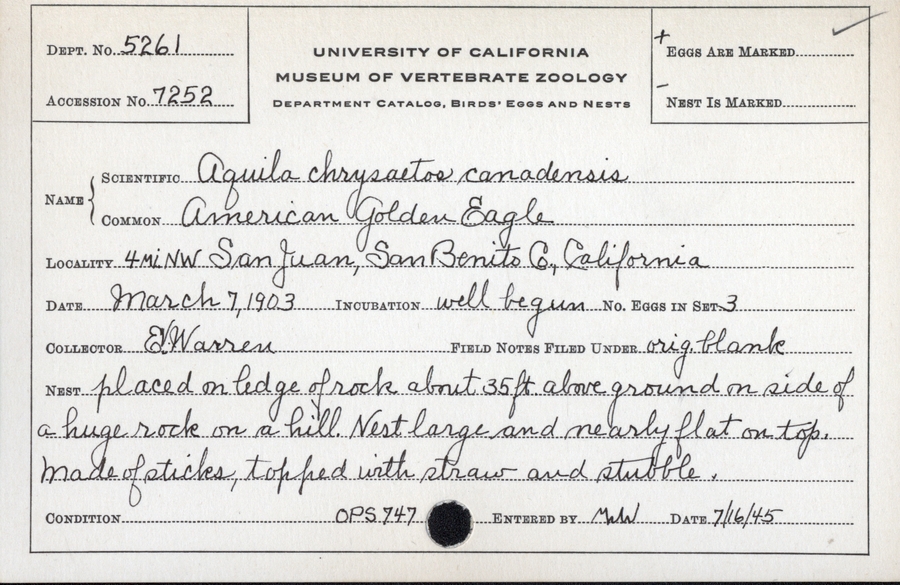 Dept. No. 5261
Accession No. 7252
UNIVERSITY OF CALIFORNIA
MUSEUM OF VERTEBRATE ZOOLOGY
Department Catalog, Birds' Eggs and Nests
+ Eggs Are Marked
- Nest Is Marked
Name { Scientific Aquila chrysaetos canadensis
Common American Golden Eagle
Locality 4 mi NW San Juan, San Benito C., California
Date March 7, 1903 Incubation well begun No. Eggs in Set 3
Collector Warren Field Notes Filed Under orig. blank
Nest placed on ledge of rock about 35 ft. above ground on side of
a huge rock on a hill. Nest large and nearly flat on top.
Made of sticks, topped with straw and stubble.
Condition OPS 747 Entered by Date 7/16/45